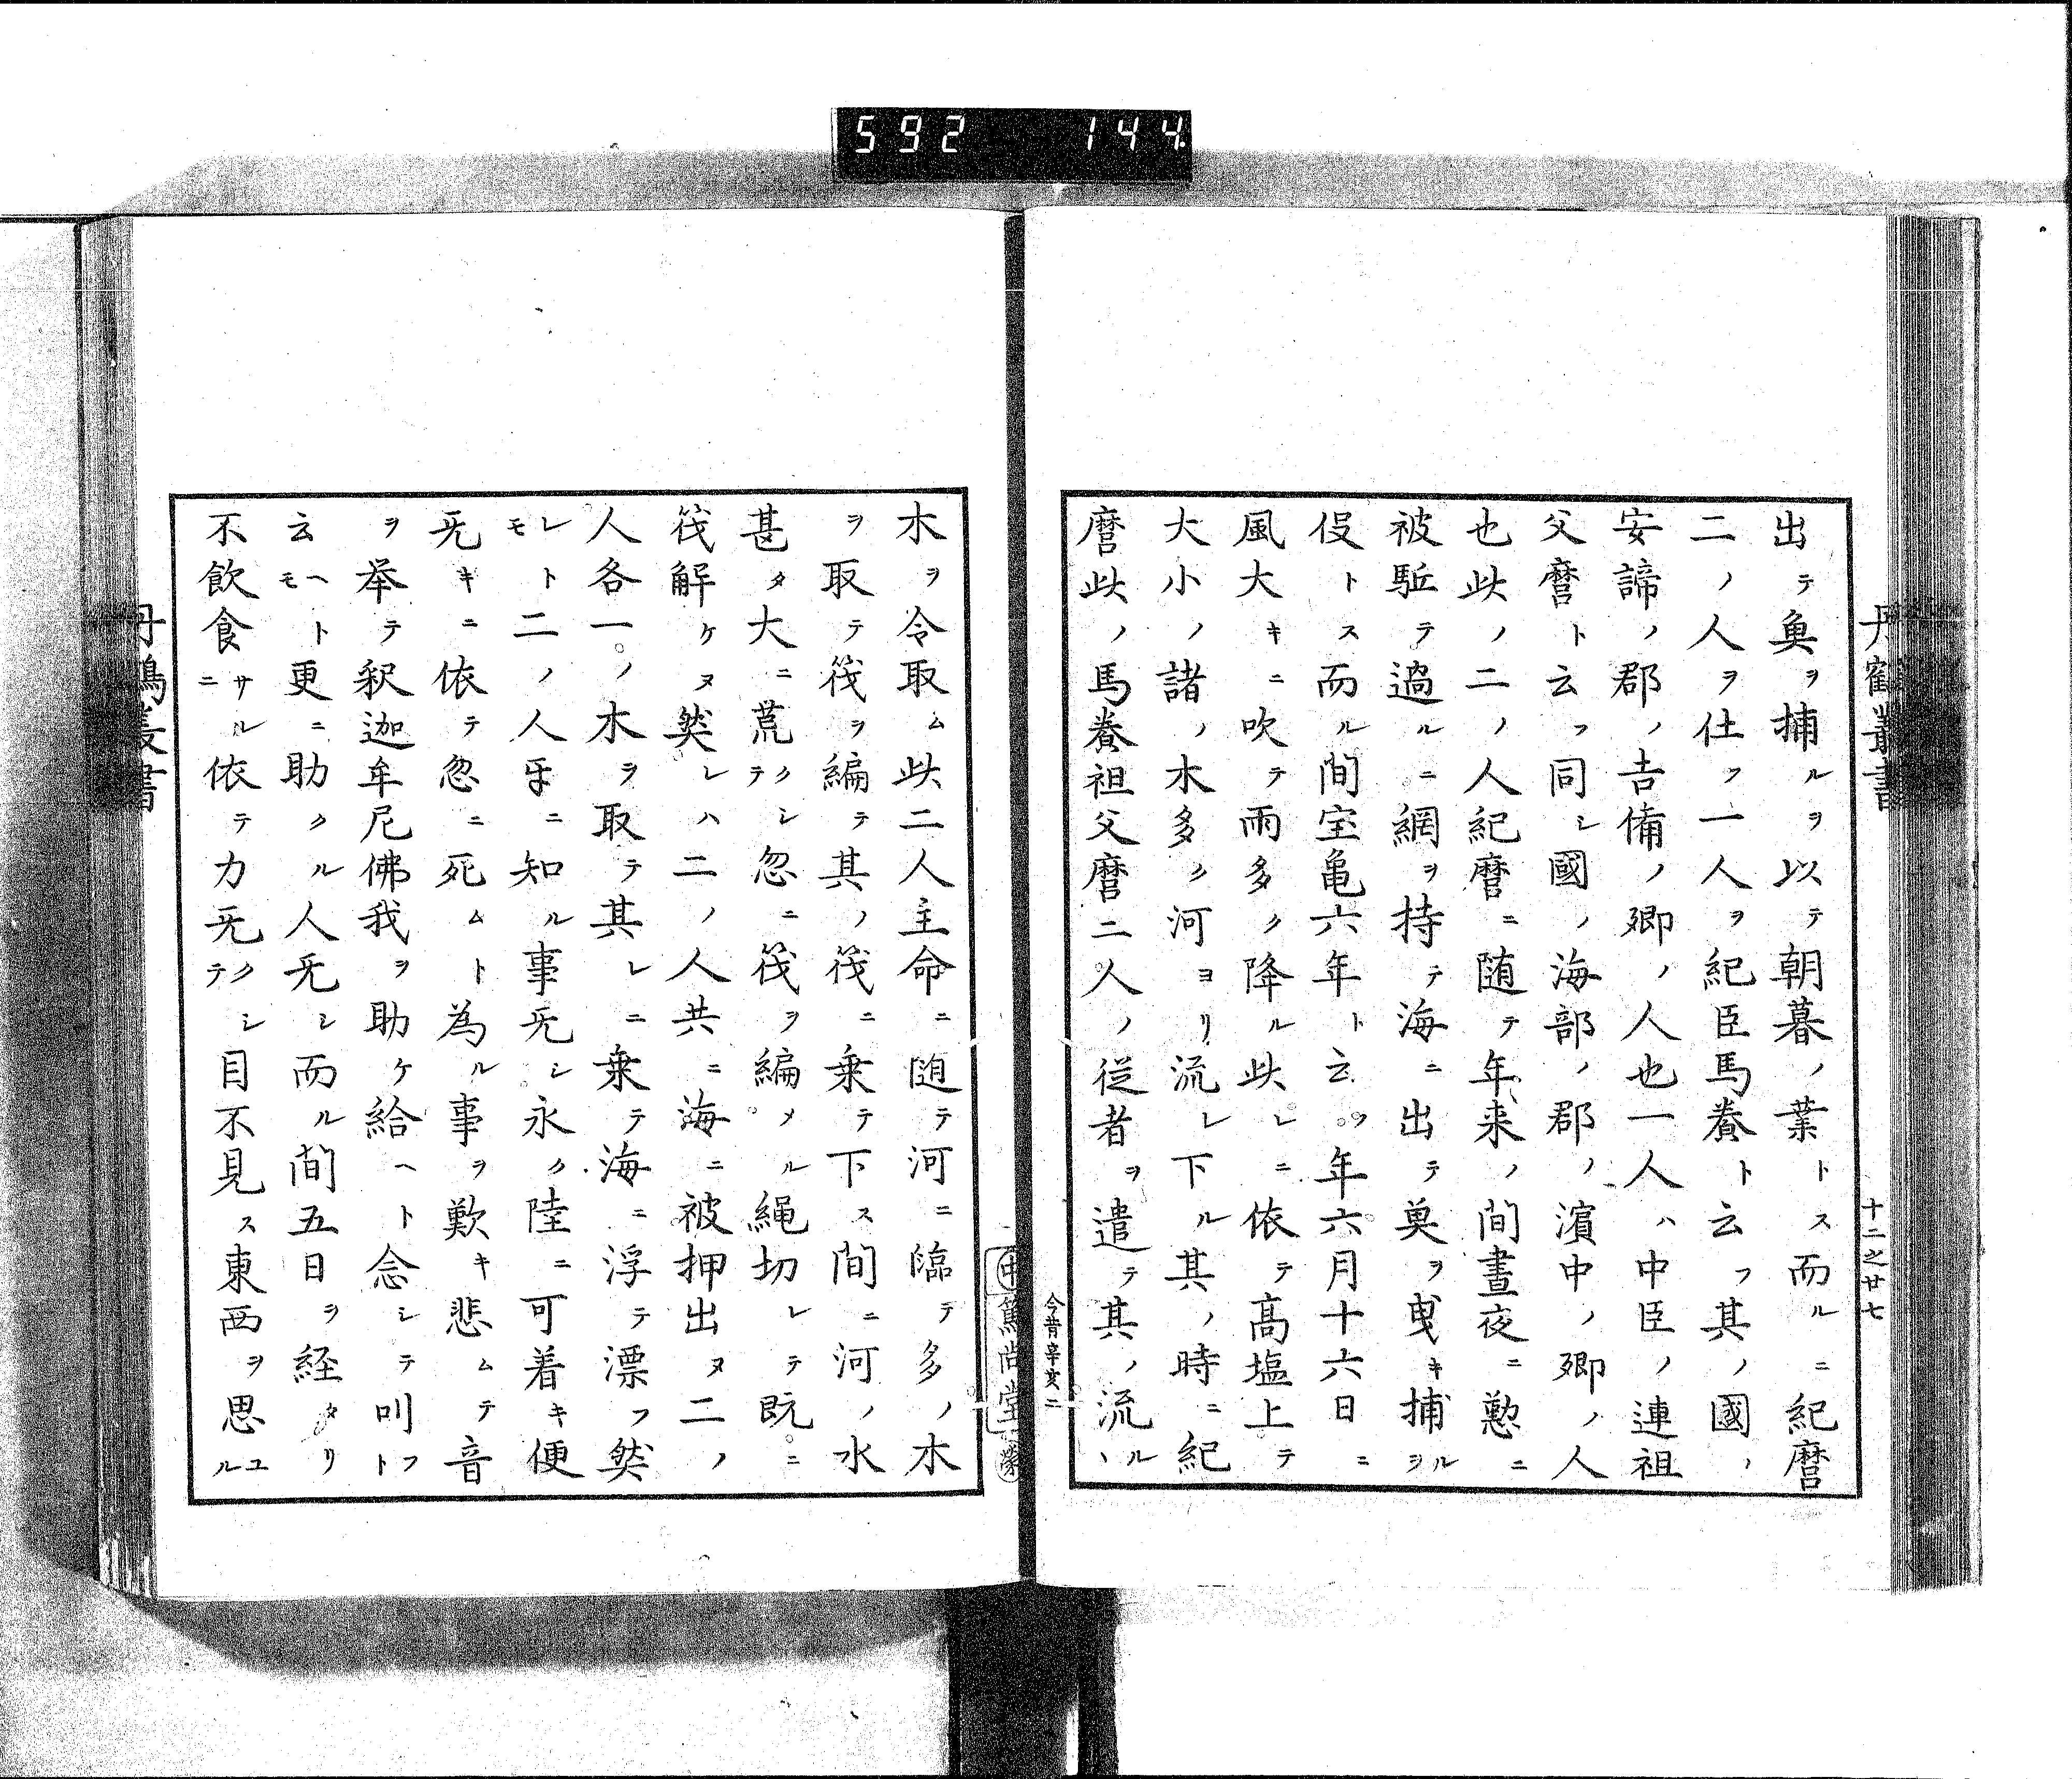 592 144
丹鶴叢書
十二之廿七
出テ魚ヲ捕ルヲ以テ朝暮ノ業トス而ルニ紀麿
二ノ人ヲ仕フ一人ヲ紀臣馬養ト云フ其ノ國ノ
安諦ノ郡ノ吉備ノ郷ノ人也一人ハ中臣ノ連祖
父麿ト云フ同シ國ノ海部ノ郡ノ濱中ノ郷ノ人
也此ノ二ノ人紀麿ニ随テ年来ノ間晝夜ニ懃ニ
被駈テ過ルニ網ヲ持テ海ニ出テ奠ヲ曳キ捕ルヲ
役トス而ル間宝亀六年ト云フ年六月十六日ニ
風大キニ吹テ雨多ク降ル此レニ依テ髙塩上テ
大小ノ諸ノ木多ク河ヨリ流レ下ル其ノ時ニ紀
麿此ノ馬養祖父麿二人ノ従者ヲ遣テ其ノ流ルヽ
今昔辛亥二
中篤尚堂蔵
木ヲ令取ム此二人主命ニ随テ河ニ臨テ多ノ木
ヲ取テ筏ヲ編テ其ノ筏ニ乗テ下ス間ニ河ノ水
甚タ大ニ荒クシテ忽ニ筏ヲ編メル縄切レテ既ニ
筏解ケヌ然レハ二ノ人共ニ海ニ被押出ヌ二ノ
人各一ノ木ヲ取テ其レニ乗テ海ニ浮テ漂フ然
レトモ二ノ人互ニ知ル事无シ永ク陸ニ可着キ便
无キニ依テ忽ニ死ムト為ル事ヲ歎キ悲ムテ音
ヲ挙テ釈迦牟尼佛我ヲ助ケ給ヘト念シテ叫フト
云ヘトモ更ニ助クル人无シ而ル間五日ヲ経タリ
不飲食サルニ依テ力无クシテ目不見ス東西ヲ思ユル
丹鶴叢書